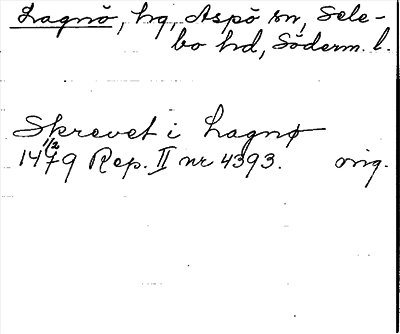 Lagnö, hg, Aspö sn, Sele-
bo hd, Söderm. l.
Skrevet i Lagnø
1479 1/2 Rep. II nr 4393. orig.